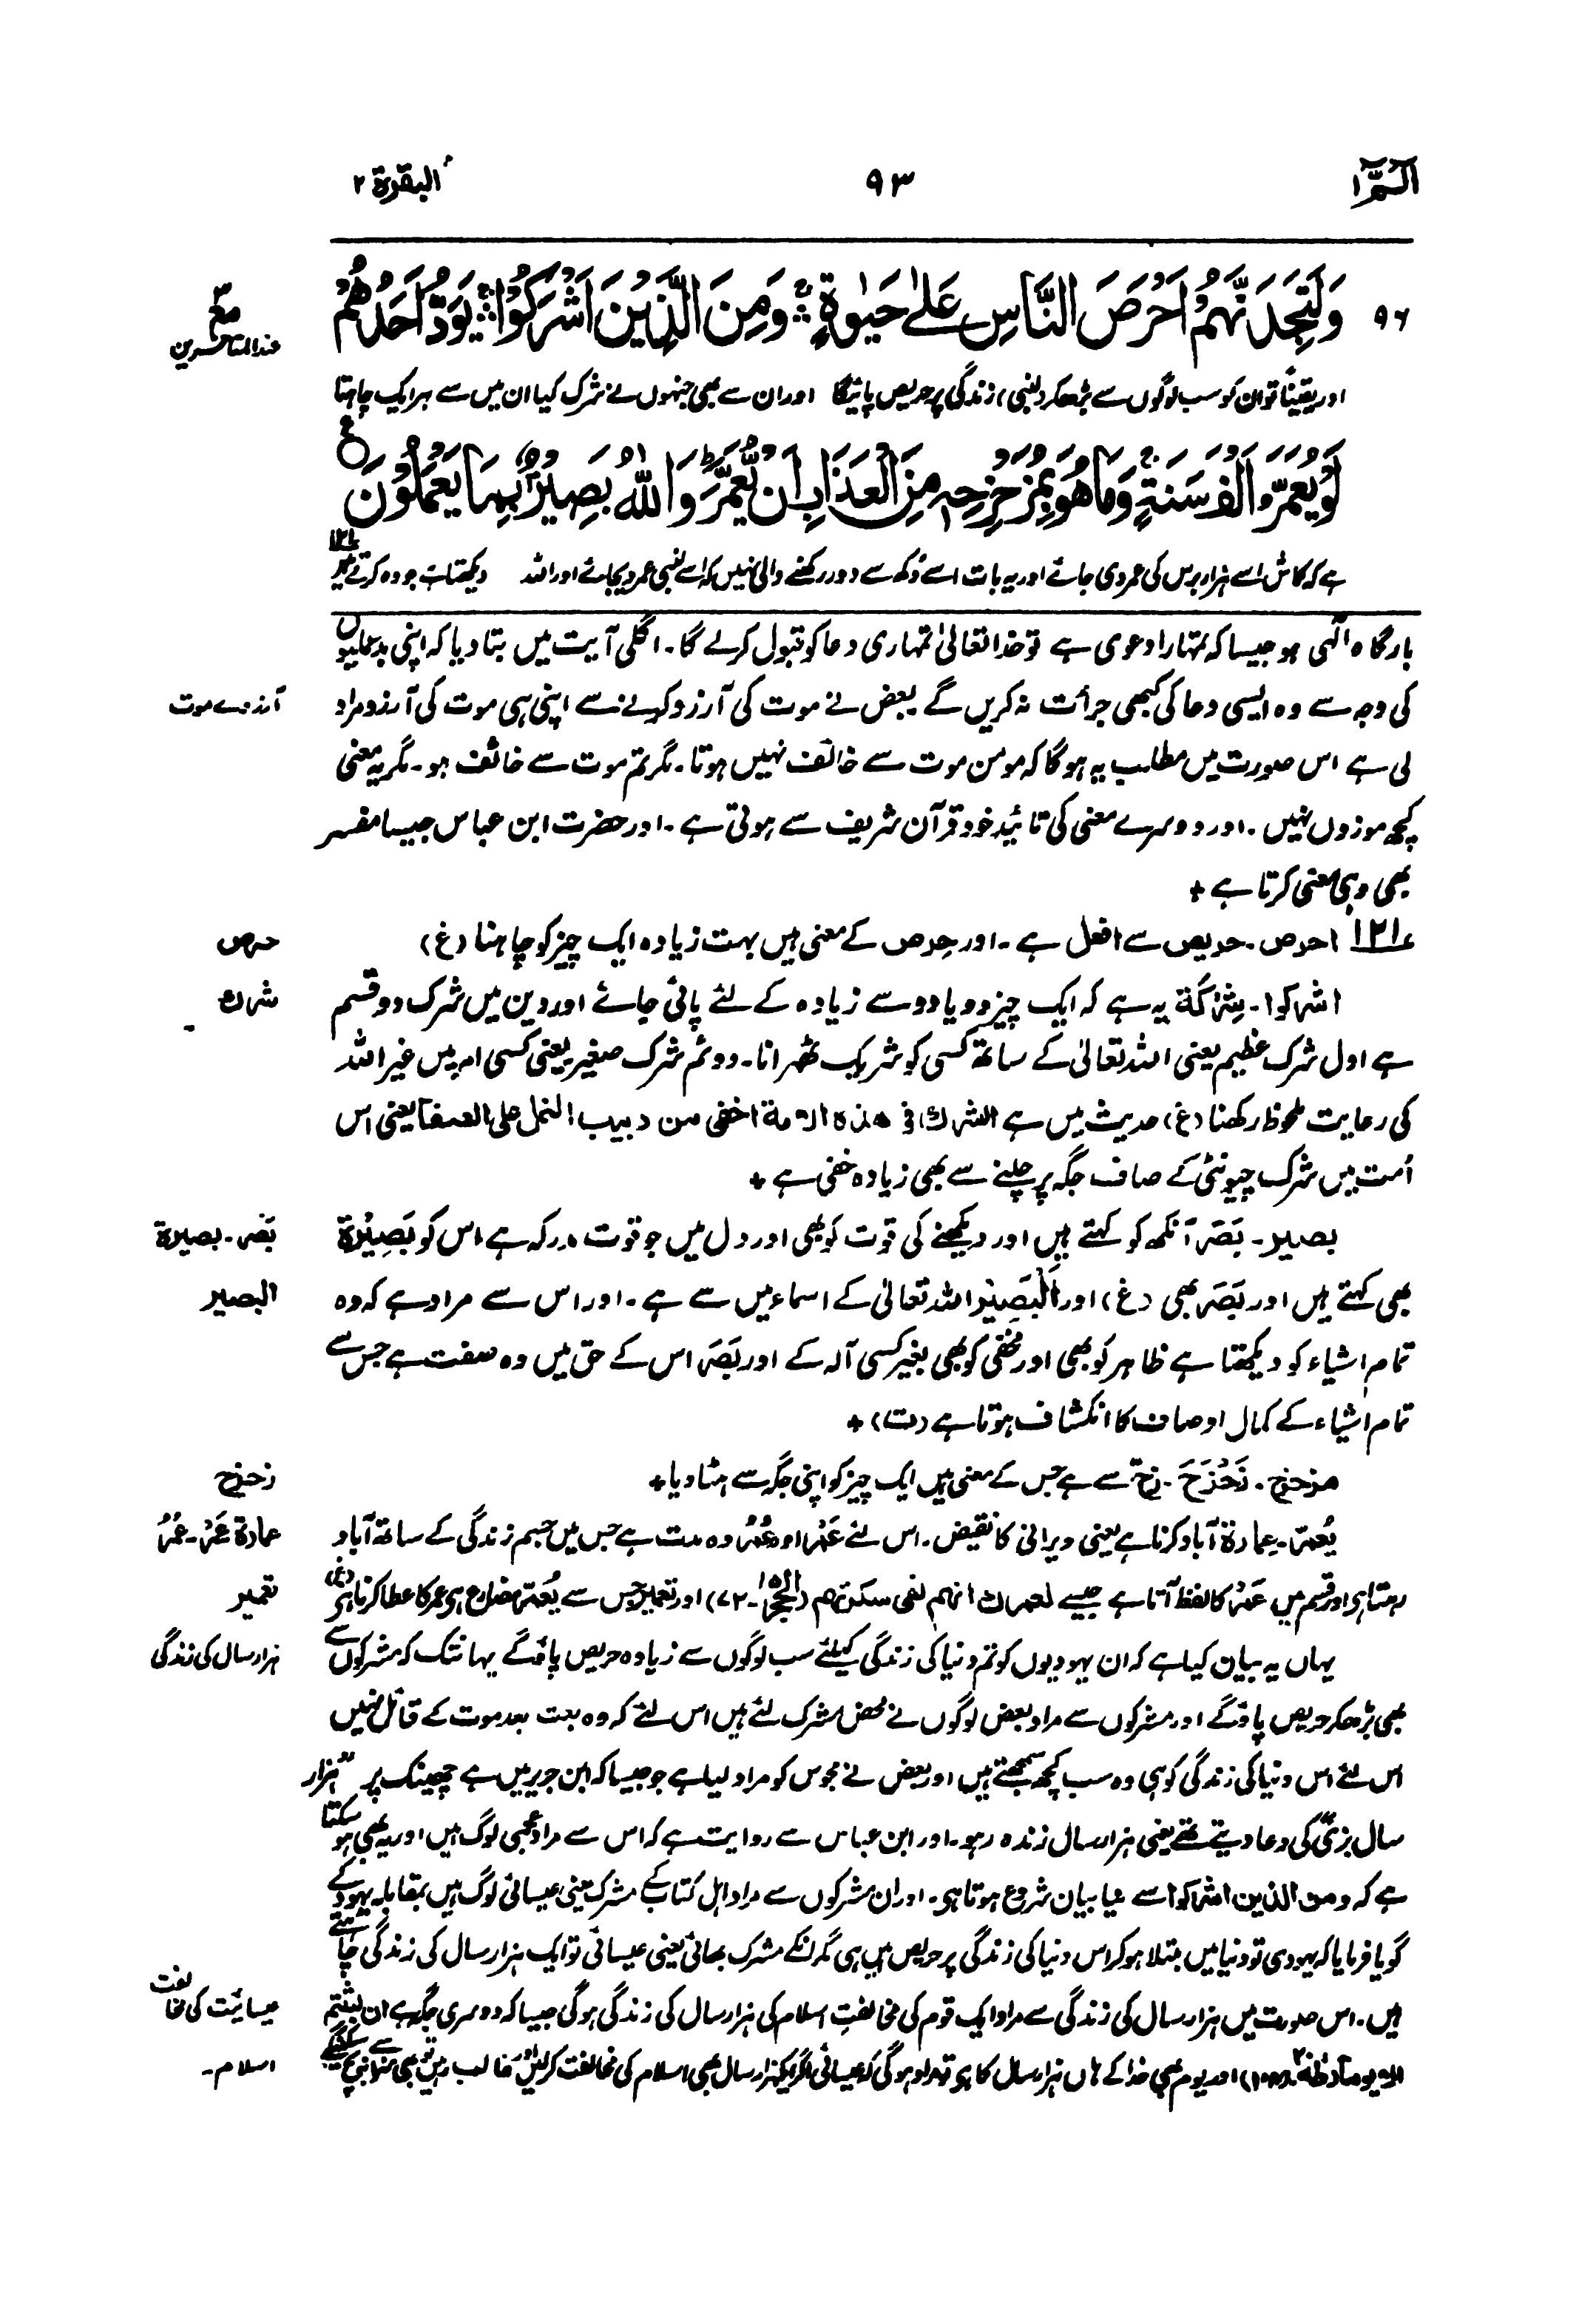 الٓمّٓ ۱
۹۳
البقرة ۲
۹۶
وَلَتَجِدَنَّهُمْ اَحْرَصَ النَّاسِ عَلٰى حَيٰوةٍ ۛ وَمِنَ الَّذِيْنَ اَشْرَكُوْا ۛ يَوَدُّ اَحَدُهُمْ
مع
عند المتاخرین
اور یقیناً تو ان کو سب لوگوں سے بڑھکر (لمبی) زندگی پر حریص پائیگا اور ان سے بھی جنہوں نے شرک کیا ان میں سے ہر ایک چاہتا
لَوْ يُعَمَّرُ اَلْفَ سَنَةٍ ۚ وَمَا هُوَ بِمُزَحْزِحِهٖ مِنَ الْعَذَابِ اَنْ يُّعَمَّرَ ؕ وَاللّٰهُ بَصِيْرٌۢ بِمَا يَعْمَلُوْنَ
ہے کہ کاش اسے ہزار برس کی عمر دی جائے اور یہ بات اسے دُکھ سے دور رکھنے والی نہیں کہ اسے لمبی عمر دیجائے اور اللہ دیکھتا ہے جو وہ کرتے ہیں ۱۲۱
بارگاہ الٰہی ہو جیسا کہ تمہارا دعوی ہے تو خدا تعالیٰ تمہاری دعا کو قبول کرلے گا۔ اگلی آیت میں بتا دیا کہ اپنی بدعملیوں
کی وجہ سے وہ ایسی دعا کی کبھی جرأت نہ کریں گے بعض نے موت کی آرزو کرنے سے اپنی ہی موت کی آرزو مراد
آرزوے موت
لی ہے اس صورت میں مطلب یہ ہوگا کہ مومن موت سے خائف نہیں ہوتا۔ مگر تم موت سے خائف ہو۔ مگر یہ معنی
کچھ موزوں نہیں۔ اور دوسرے معنی کی تائید خود قرآن شریف سے ہوتی ہے۔ اور حضرت ابن عباس جیسا مفسر
بھی وہی معنی کرتا ہے +
۱۲۱ احرص۔ حریص سے افعل ہے۔ اور حِرص کے معنی ہیں بہت زیادہ ایک چیز کو چاہنا (غ)
حرص
اشرکوا۔ شِرْکَة یہ ہے کہ ایک چیز دو یا دو سے زیادہ کے لئے پائی جائے اور دین میں شرک دو قسم
شرك
ہے اول شرک عظیم یعنی اللہ تعالیٰ کے ساتھ کسی کو شریک ٹھہرانا۔ دوئم شرک صغیر یعنی کسی امر میں غیر اللہ
کی رعایت ملحوظ رکھنا (غ) حدیث میں ہے الشرك فی هذه الامة اخفی من دبیب النمل علی الصفا یعنی اس
اُمت میں شرک چیونٹی کے صاف جگہ پر چلنے سے بھی زیادہ خفی ہے +
بصیر۔ بَصَر آنکھ کو کہتے ہیں اور دیکھنے کی قوت کو بھی اور دل میں جو قوت مدرکہ ہے اس کو بَصِیْرَة
بَصَر۔ بصیرة
بھی کہتے ہیں اور بَصَر بھی (غ) اور اَلْبَصِیْر اللہ تعالیٰ کے اسماء میں سے ہے۔ اور اس سے مراد ہے کہ وہ
البصیر
تمام اشیاء کو دیکھتا ہے ظاہر کو بھی اور مخفی کو بھی بغیر کسی آلہ کے اور بَصَر اس کے حق میں وہ صفت ہے جس سے
تمام اشیاء کے کمال اوصاف کا انکشاف ہوتا ہے (ت) +
مزحزح۔ زَحْزَحَ۔ زحّ سے ہے جس کے معنی ہیں ایک چیز کو اپنی جگہ سے ہٹا دیا +
زحزح
یُعمّر۔ عِمارة آباد کرنا ہے یعنی ویرانی کا نقیض۔ اس لئے عَمْر اور عُمُر وہ مدت ہے جس میں جسم زندگی کے ساتھ آباد
عمارة عَمْر۔ عُمُر
رہتا ہی اور قسم میں عَمْر کا لفظ آتا ہے جیسے لعمرك انهم لفی سکرتهم (الحجر ۱۵۔۷۲) اور تعمیر جس سے یُعَمَّر مضارع ہی عمر کا عطا کرنا ہی (غ)
تعمیر
یہاں یہ بیان کیا ہے کہ ان یہودیوں کو تم دنیا کی زندگی کیلئے سب لوگوں سے زیادہ حریص پاؤگے یہانتک کہ مشرکوں سے
ہزار سال کی زندگی
بھی بڑھکر حریص پاؤگے اور مشرکوں سے مراد بعض لوگوں نے محض مشرک لئے ہیں اس لئے کہ وہ بعث بعد موت کے قائل نہیں
اس لئے اس دنیا کی زندگی کو ہی وہ سب کچھ سمجھتے ہیں اور بعض نے مجوس کو مراد لیا ہے جو جیسا کہ ابن جریر میں ہے چھینک پر ہزار
سال بزی کی دعا دیتے تھے یعنی ہزار سال زندہ رہو۔ اور ابن عباس سے روایت ہے کہ اس سے مراد عجمی لوگ ہیں اور یہ بھی ہو سکتا
ہے کہ ومن الذین اشرکوا سے نیا بیان شروع ہوتا ہی۔ اور ان مشرکوں سے مراد اہل کتاب کے مشرک یعنی عیسائی لوگ ہیں بمقابلہ یہود کے
گویا فرمایا کہ یہودی تو دنیا میں مبتلا ہو کر اس دنیا کی زندگی پر حریص ہیں ہی مگر انکے مشرک بھائی یعنی عیسائی تو ایک ہزار سال کی زندگی چاہتے
ہیں۔ اس صورت میں ہزار سال کی زندگی سے مراد ایک قوم کی مخالفت اسلام کی ہزار سال کی زندگی ہوگی جیسا کہ دوسری جگہ ہے ان لبثتم
عیسائیت کی مخالفت
الا یوما (طٰہٰ ۲۰۔۱۰۴) اور یوم بھی خدا کے ہاں ہزار سال کا ہی تو مراد ہوگی کہ عیسائی اگر ایک ہزار سال بھی اسلام کی مخالفت کرلیں اور غالب رہیں تو بھی سزا سے
اسلام۔